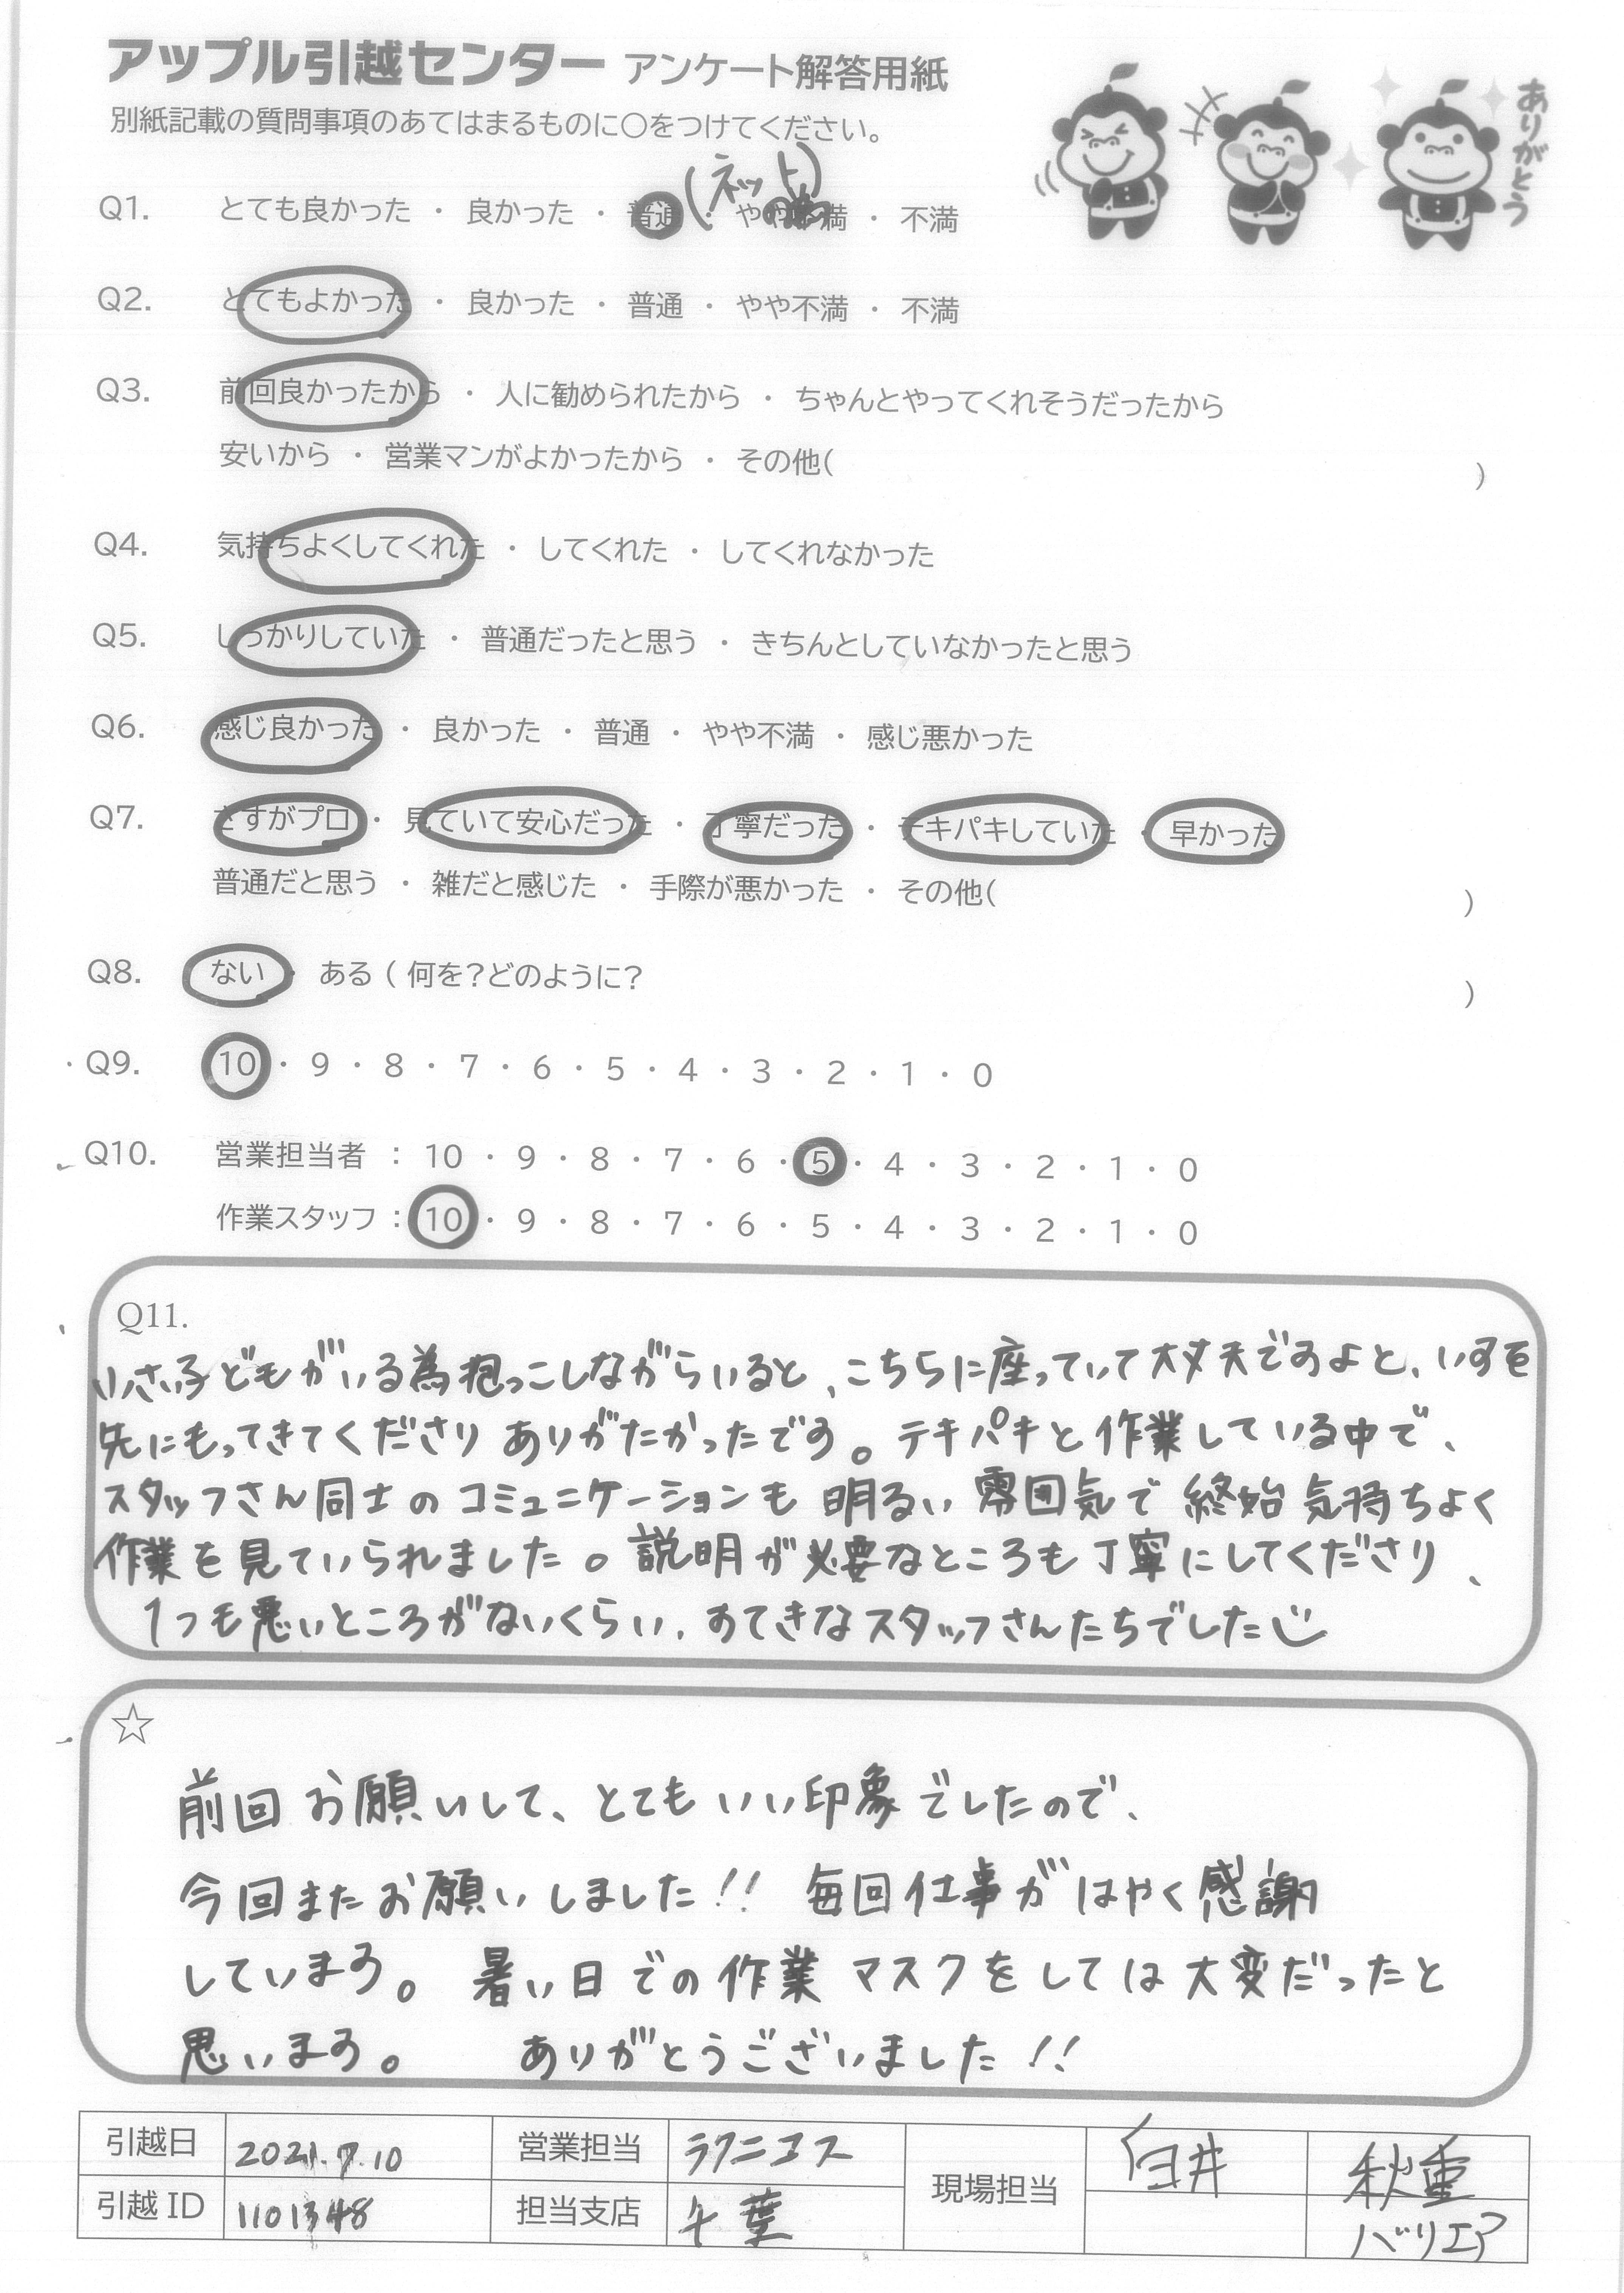 アップル引越センター アンケート解答用紙
別紙記載の質問事項のあてはまるものに○をつけてください。
ありがとう
(ネット)
Q1. とても良かった ・ 良かった ・ 普通 ・ やや不満 ・ 不満
Q2. とてもよかった ・ 良かった ・ 普通 ・ やや不満 ・ 不満
Q3. 前回良かったから ・ 人に勧められたから ・ ちゃんとやってくれそうだったから
安いから ・ 営業マンがよかったから ・ その他( )
Q4. 気持ちよくしてくれた ・ してくれた ・ してくれなかった
Q5. しっかりしていた ・ 普通だったと思う ・ きちんとしていなかったと思う
Q6. 感じ良かった ・ 良かった ・ 普通 ・ やや不満 ・ 感じ悪かった
Q7. さすがプロ ・ 見ていて安心だった ・ 丁寧だった ・ テキパキしていた ・ 早かった
普通だと思う ・ 雑だと感じた ・ 手際が悪かった ・ その他( )
Q8. ない ・ ある ( 何を?どのように? )
Q9. 10 ・ 9 ・ 8 ・ 7 ・ 6 ・ 5 ・ 4 ・ 3 ・ 2 ・ 1 ・ 0
Q10. 営業担当者 : 10 ・ 9 ・ 8 ・ 7 ・ 6 ・ 5 ・ 4 ・ 3 ・ 2 ・ 1 ・ 0
作業スタッフ : 10 ・ 9 ・ 8 ・ 7 ・ 6 ・ 5 ・ 4 ・ 3 ・ 2 ・ 1 ・ 0
Q11.
小さい子どもがいる為抱っこしながらいると、こちらに座っていて大丈夫ですよと、いすを
先にもってきてくださり ありがたかったです。テキパキと作業している中で、
スタッフさん同士のコミュニケーションも明るい雰囲気で終始気持ちよく
作業を見ていられました。説明が必要なところも丁寧にしてくださり、
1つも悪いところがないくらい、すてきなスタッフさんたちでした
☆
前回お願いして、とてもいい印象でしたので、
今回またお願いしました!! 毎回仕事がはやく感謝
しています。 暑い日での作業マスクをしては大変だったと
思います。 ありがとうございました!!
引越日 2021.7.10 営業担当 ラクニコス 現場担当 臼井 秋重
引越ID 1101348 担当支店 千葉 バリエア